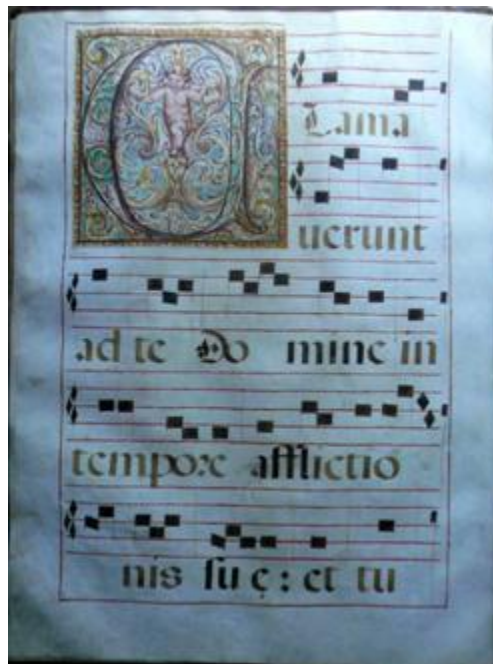 CLama
uerunt
ad te Do mine in
tempore afflictio
nis ſu ę : et tu